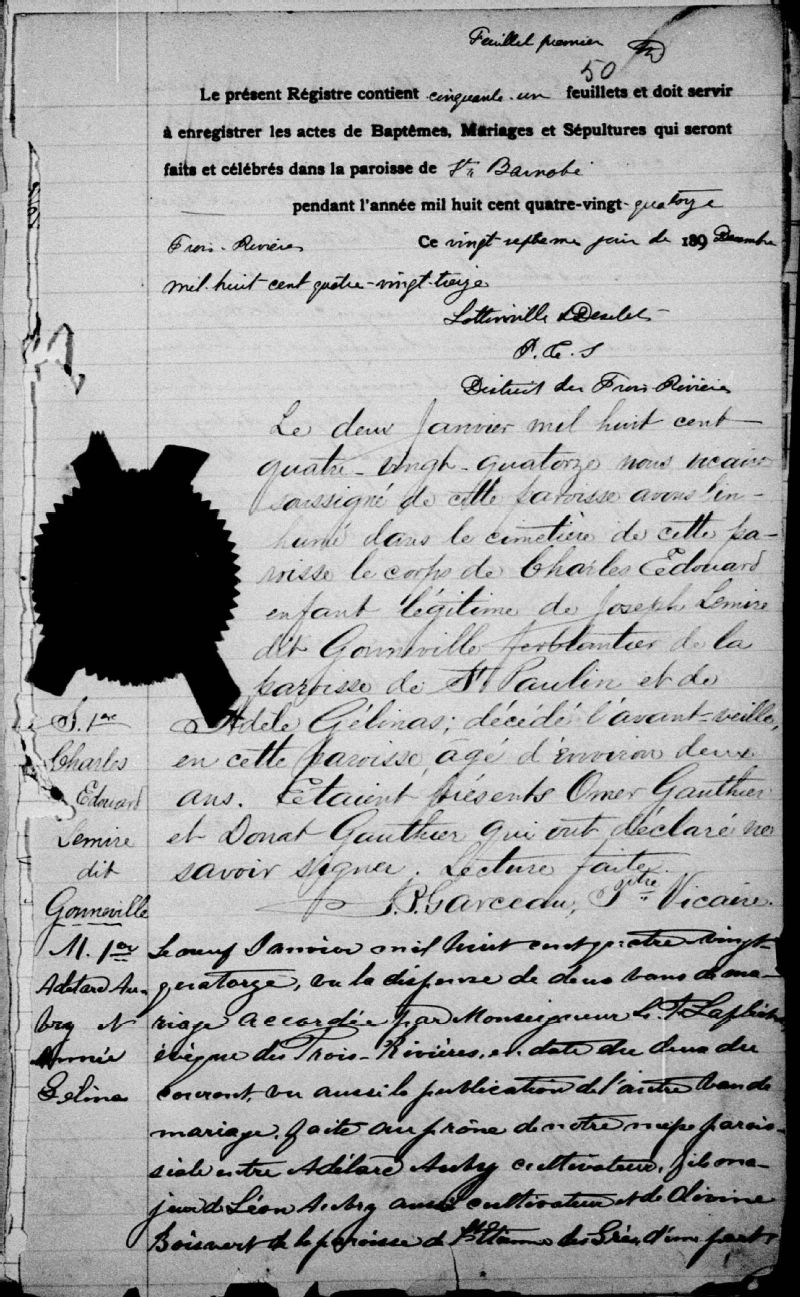 Feuillet premier
50
Le présent Régistre contient cinquante-un feuillets et doit servir
à enregistrer les actes de Baptêmes, Mariages et Sépultures qui seront
faits et célébrés dans la paroisse de St Barnabé
pendant l'année mil huit cent quatre-vingt-quatorze
Trois-Rivières Ce vingt septième jour de 189 Decembre
mil-huit cent quatre-vingt-treize
Lottinville & Desilets
P. C. S
District des Trois-Rivières
Le deux Janvier mil huit cent
quatre-vingt-quatorze nous vicaire
soussigné de cette paroisse avons in-
humé dans le cimetière de cette pa-
roisse le corps de Charles Edouard
enfant légitime de Joseph Lemire
dit Gonneville ferblantier de la
paroisse de St Paulin et de
S. 1ere
Adèle Gélinas; décédé l'avant-veille,
Charles
en cette paroisse, agé d'environ deux
Edouard
ans. Etaient présents Omer Gauthier
Lemire
et Donat Gauthier qui ont déclaré ne
dit
savoir signer. Lecture faite.
Gonneville
Garceau, Ptre Vicaire.
M. 1er
Le neuf Janvier mil huit cent quatre vingt-
Adélard Au-
quatorze, vu la dispense de deux bans de ma-
bry et
riage accordée par Monseigneur L. F. Laflèche
évêque des Trois-Rivières, en date du deux du
Gélinas
courant, vu aussi la publication de l'autre ban de
mariage, faite au prône de notre messe parois-
siale entre Adélard Aubry cultivateur, fils ma-
jeur de Léon Aubry aussi cultivateur et de Olivine
Boisvert de la paroisse de St Etienne des Grès, d'une part